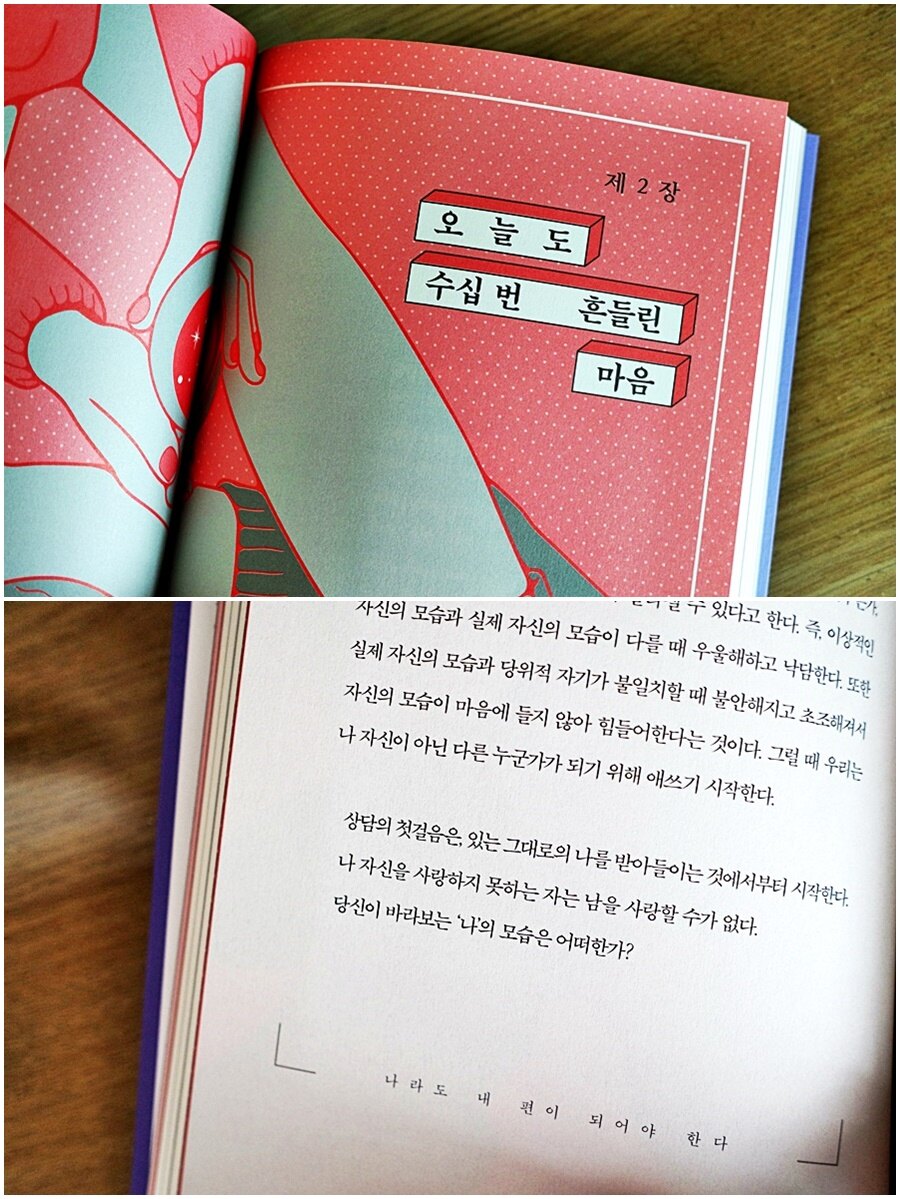 제 2 장
오늘도
수십 번 흔들린
마음
수 있다고 한다. 즉, 이상적인
자신의 모습과 실제 자신의 모습이 다를 때 우울해하고 낙담한다. 또한
실제 자신의 모습과 당위적 자기가 불일치할 때 불안해지고 초조해져서
자신의 모습이 마음에 들지 않아 힘들어한다는 것이다. 그럴 때 우리는
나 자신이 아닌 다른 누군가가 되기 위해 애쓰기 시작한다.
상담의 첫걸음은, 있는 그대로의 나를 받아들이는 것에서부터 시작한다.
나 자신을 사랑하지 못하는 자는 남을 사랑할 수가 없다.
당신이 바라보는 ‘나’의 모습은 어떠한가?
나라도 내 편이 되어야 한다